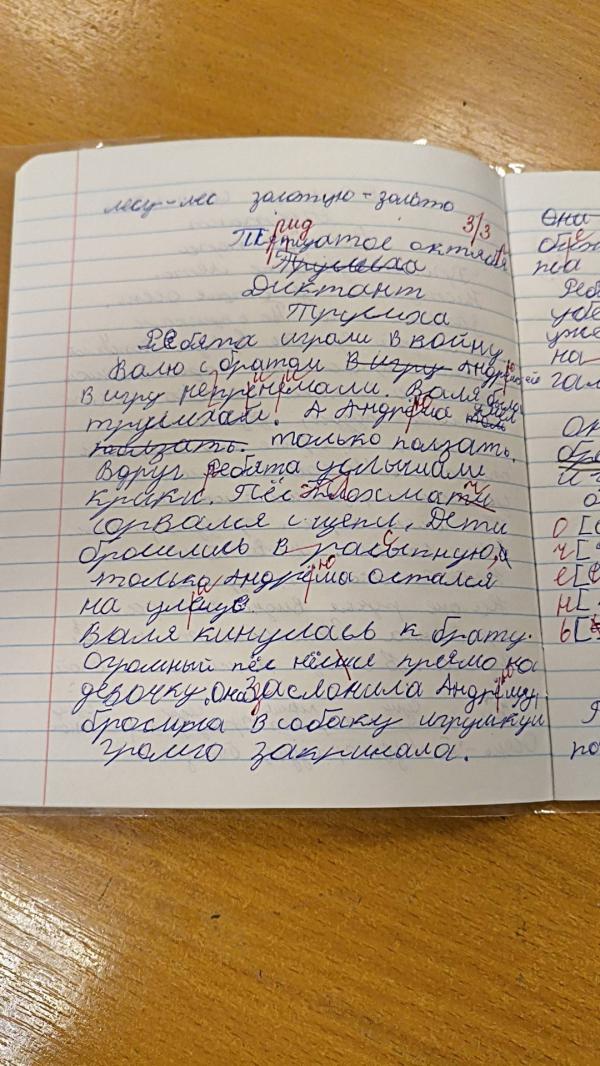 лесу-лес золотую - золото
3/3
рид
Пе тцатое октября
Трусиха
Диктант
Трусиха
Ребята играли в войну.
Валю с братом в игру Андрюшей
в игру непренемали. Валя была
трусихай. А Андрема мог
ползать. только ползать.
Вдруг ребята услышали
крики. Пёс Лохматы
сорвался с цепи. Дети
бросились в расыпную, а
только Андрема остался
на улеце.
Валя кинулась к брату.
Огромный пёс нёсься прямо на
девочку. Она заслонила Андрему,
бросирга в собаку игрушку и
громго закринала.
Она
пса
Ребя
уве
уже
на
гал
Он
обр
и г
о [
ч [
е [
н [
ь [
по